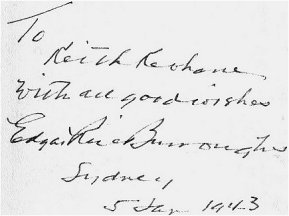 To
Keith Keohane
With all good wishes
Edgar Rice Burroughs
Sydney
5 Jan 1943